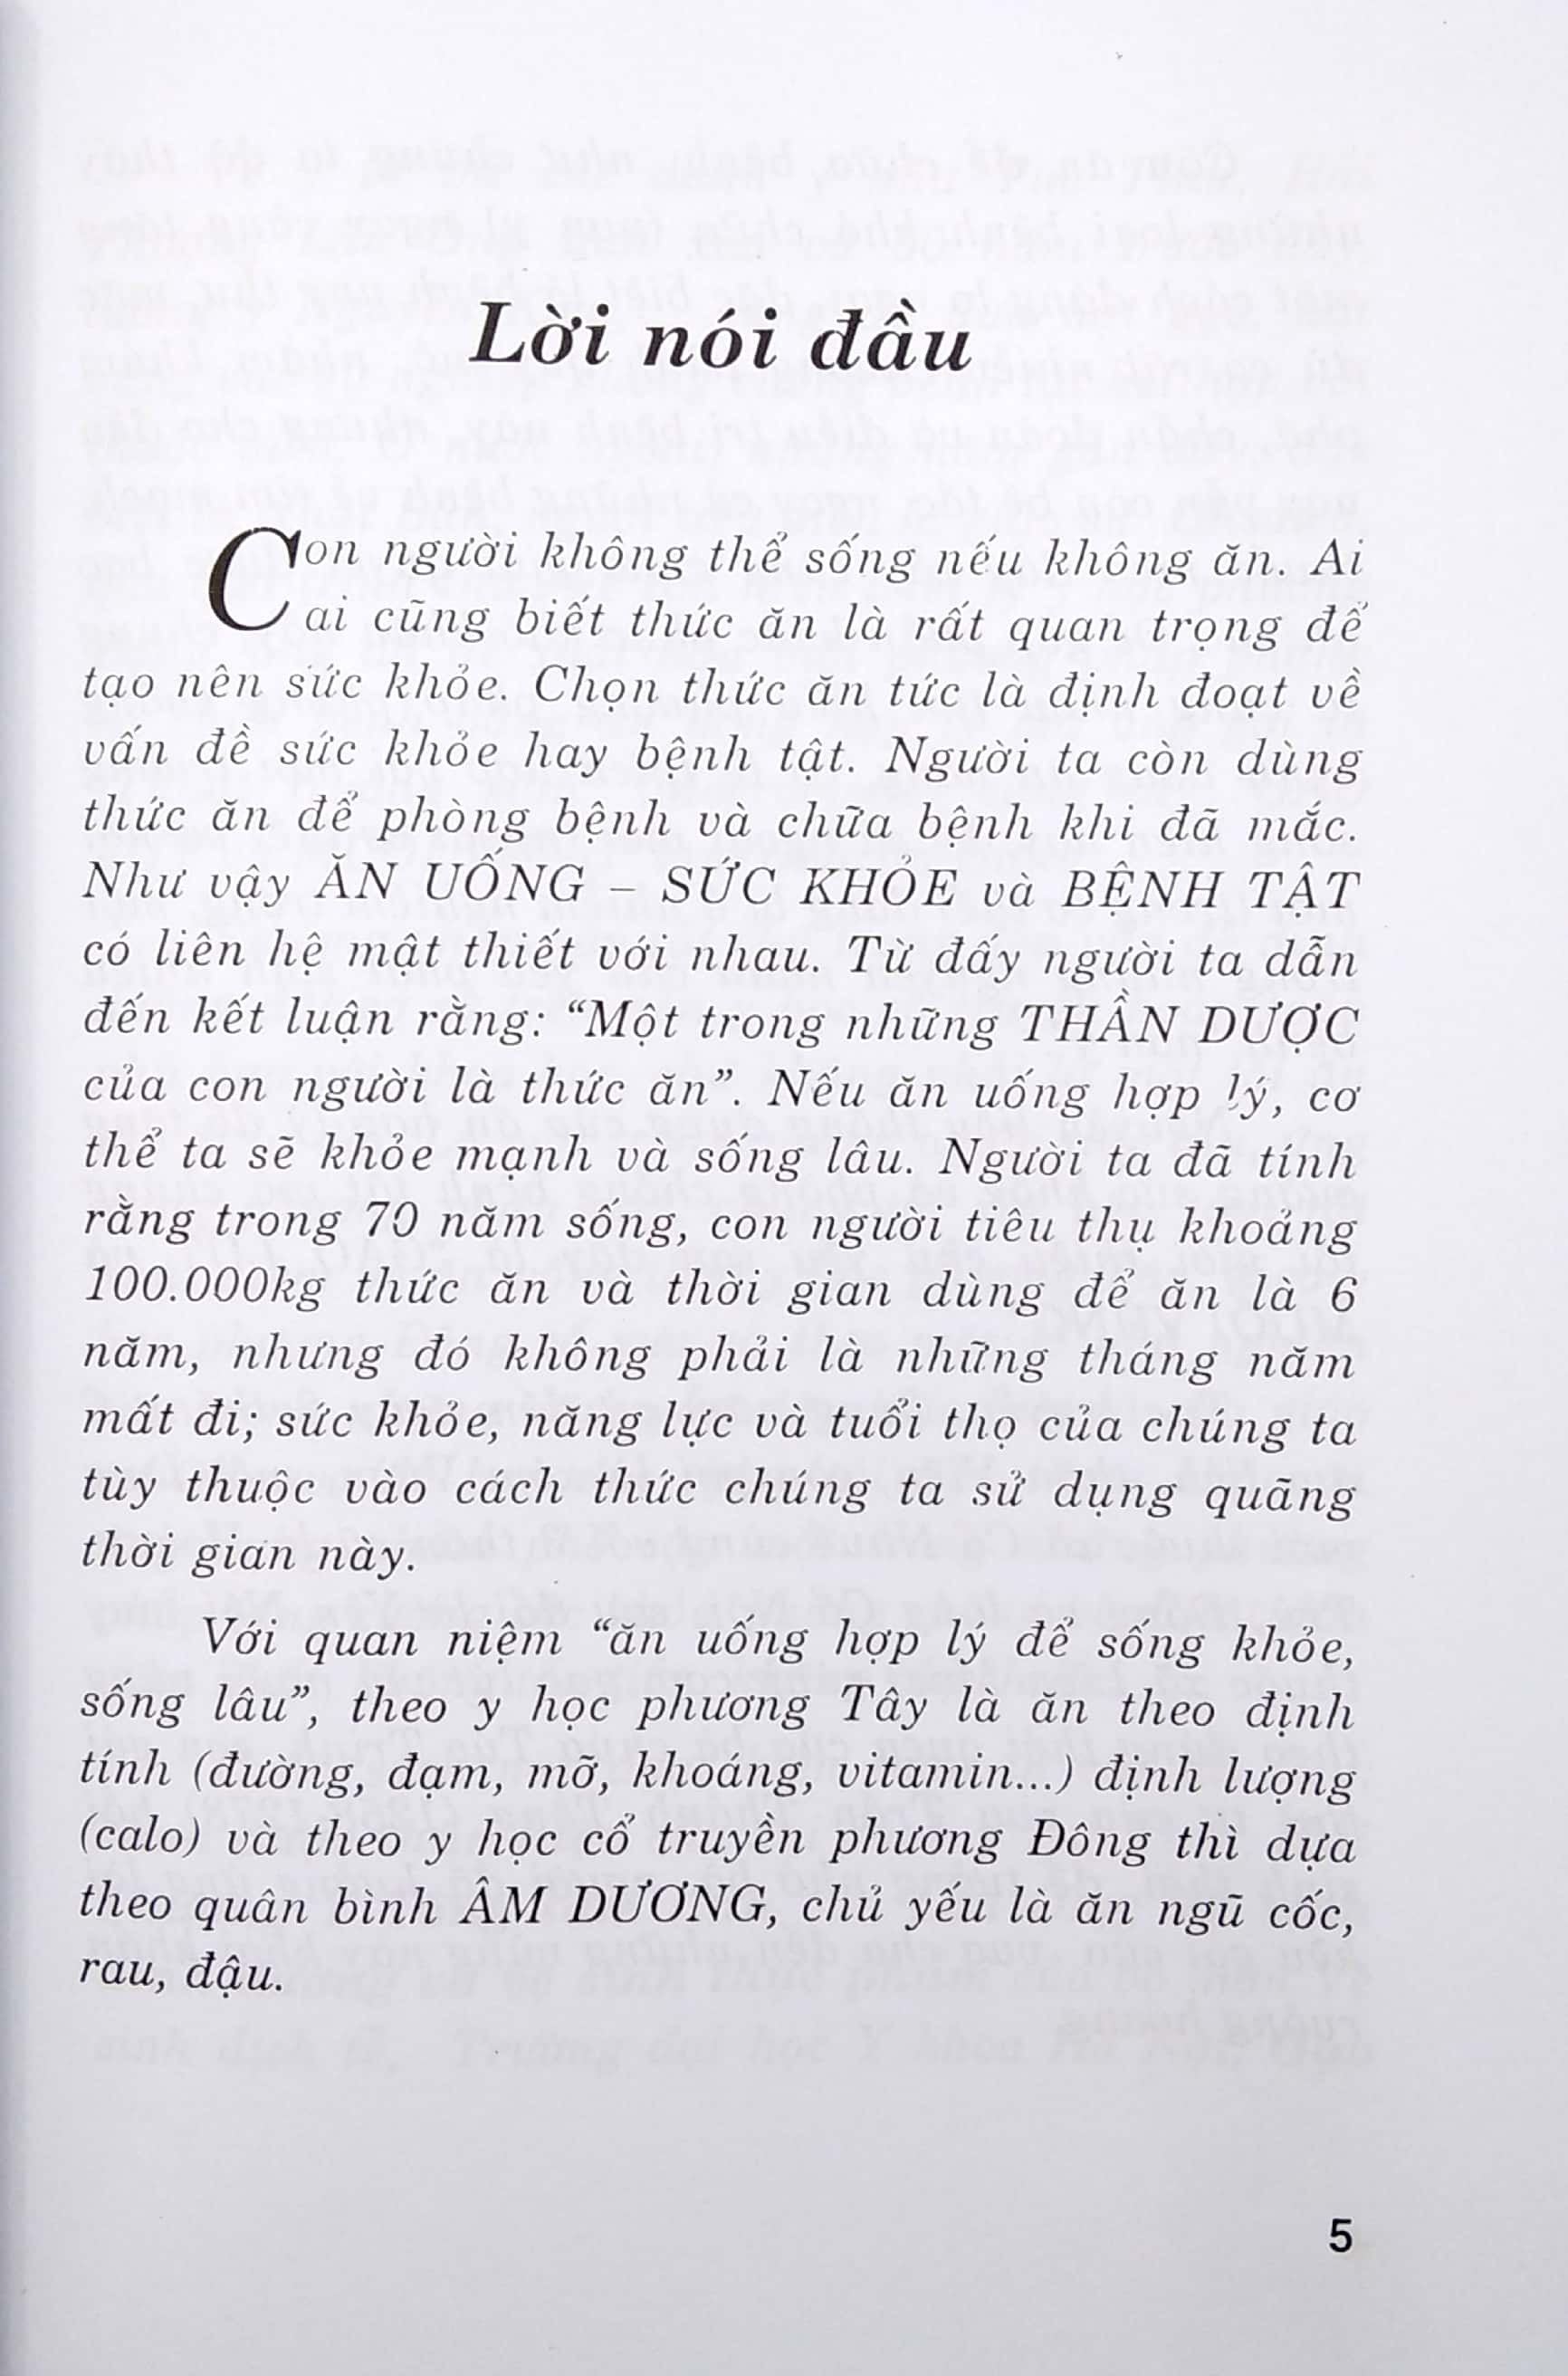 Lời nói đầu
Con người không thể sống nếu không ăn. Ai
ai cũng biết thức ăn là rất quan trọng để
tạo nên sức khỏe. Chọn thức ăn tức là định đoạt về
vấn đề sức khỏe hay bệnh tật. Người ta còn dùng
thức ăn để phòng bệnh và chữa bệnh khi đã mắc.
Như vậy ĂN UỐNG – SỨC KHỎE và BỆNH TẬT
có liên hệ mật thiết với nhau. Từ đấy người ta dẫn
đến kết luận rằng: “Một trong những THẦN DƯỢC
của con người là thức ăn”. Nếu ăn uống hợp lý, cơ
thể ta sẽ khỏe mạnh và sống lâu. Người ta đã tính
rằng trong 70 năm sống, con người tiêu thụ khoảng
100.000kg thức ăn và thời gian dùng để ăn là 6
năm, nhưng đó không phải là những tháng năm
mất đi; sức khỏe, năng lực và tuổi thọ của chúng ta
tùy thuộc vào cách thức chúng ta sử dụng quãng
thời gian này.
Với quan niệm “ăn uống hợp lý để sống khỏe,
sống lâu”, theo y học phương Tây là ăn theo định
tính (đường, đạm, mỡ, khoáng, vitamin...) định lượng
(calo) và theo y học cổ truyền phương Đông thì dựa
theo quân bình ÂM DƯƠNG, chủ yếu là ăn ngũ cốc,
rau, đậu.
5